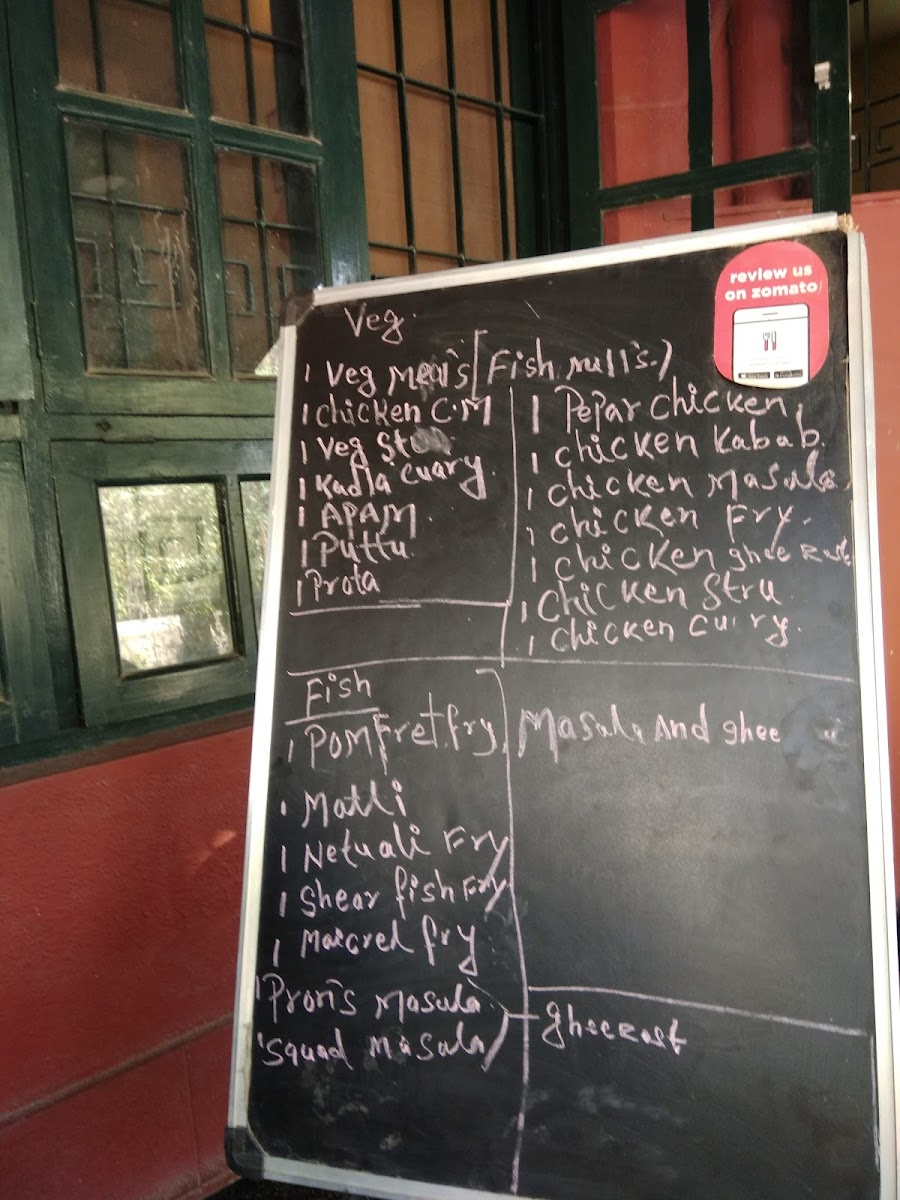 review us
on zomato
Veg.
1 Veg Meal's [Fish mell's.)
1 chicken C.M
1 Veg
1 Kadla cuary.
1 APAM.
1 Puttu.
1 Prota
1 Pepar chicken.
1 chicken Kabab.
1 chicken Masala
1 chicken Fry.
1 chicken ghee Rast
1 chicken Stru
1 chicken curry.
Fish
1 Pomfret fry. Masala And ghee
1 Matti
1 Netuali Fry
1 Shear fish Fry
1 Maicrel fry
1 Pron's Masala
1 Squad Masala) gheeRast